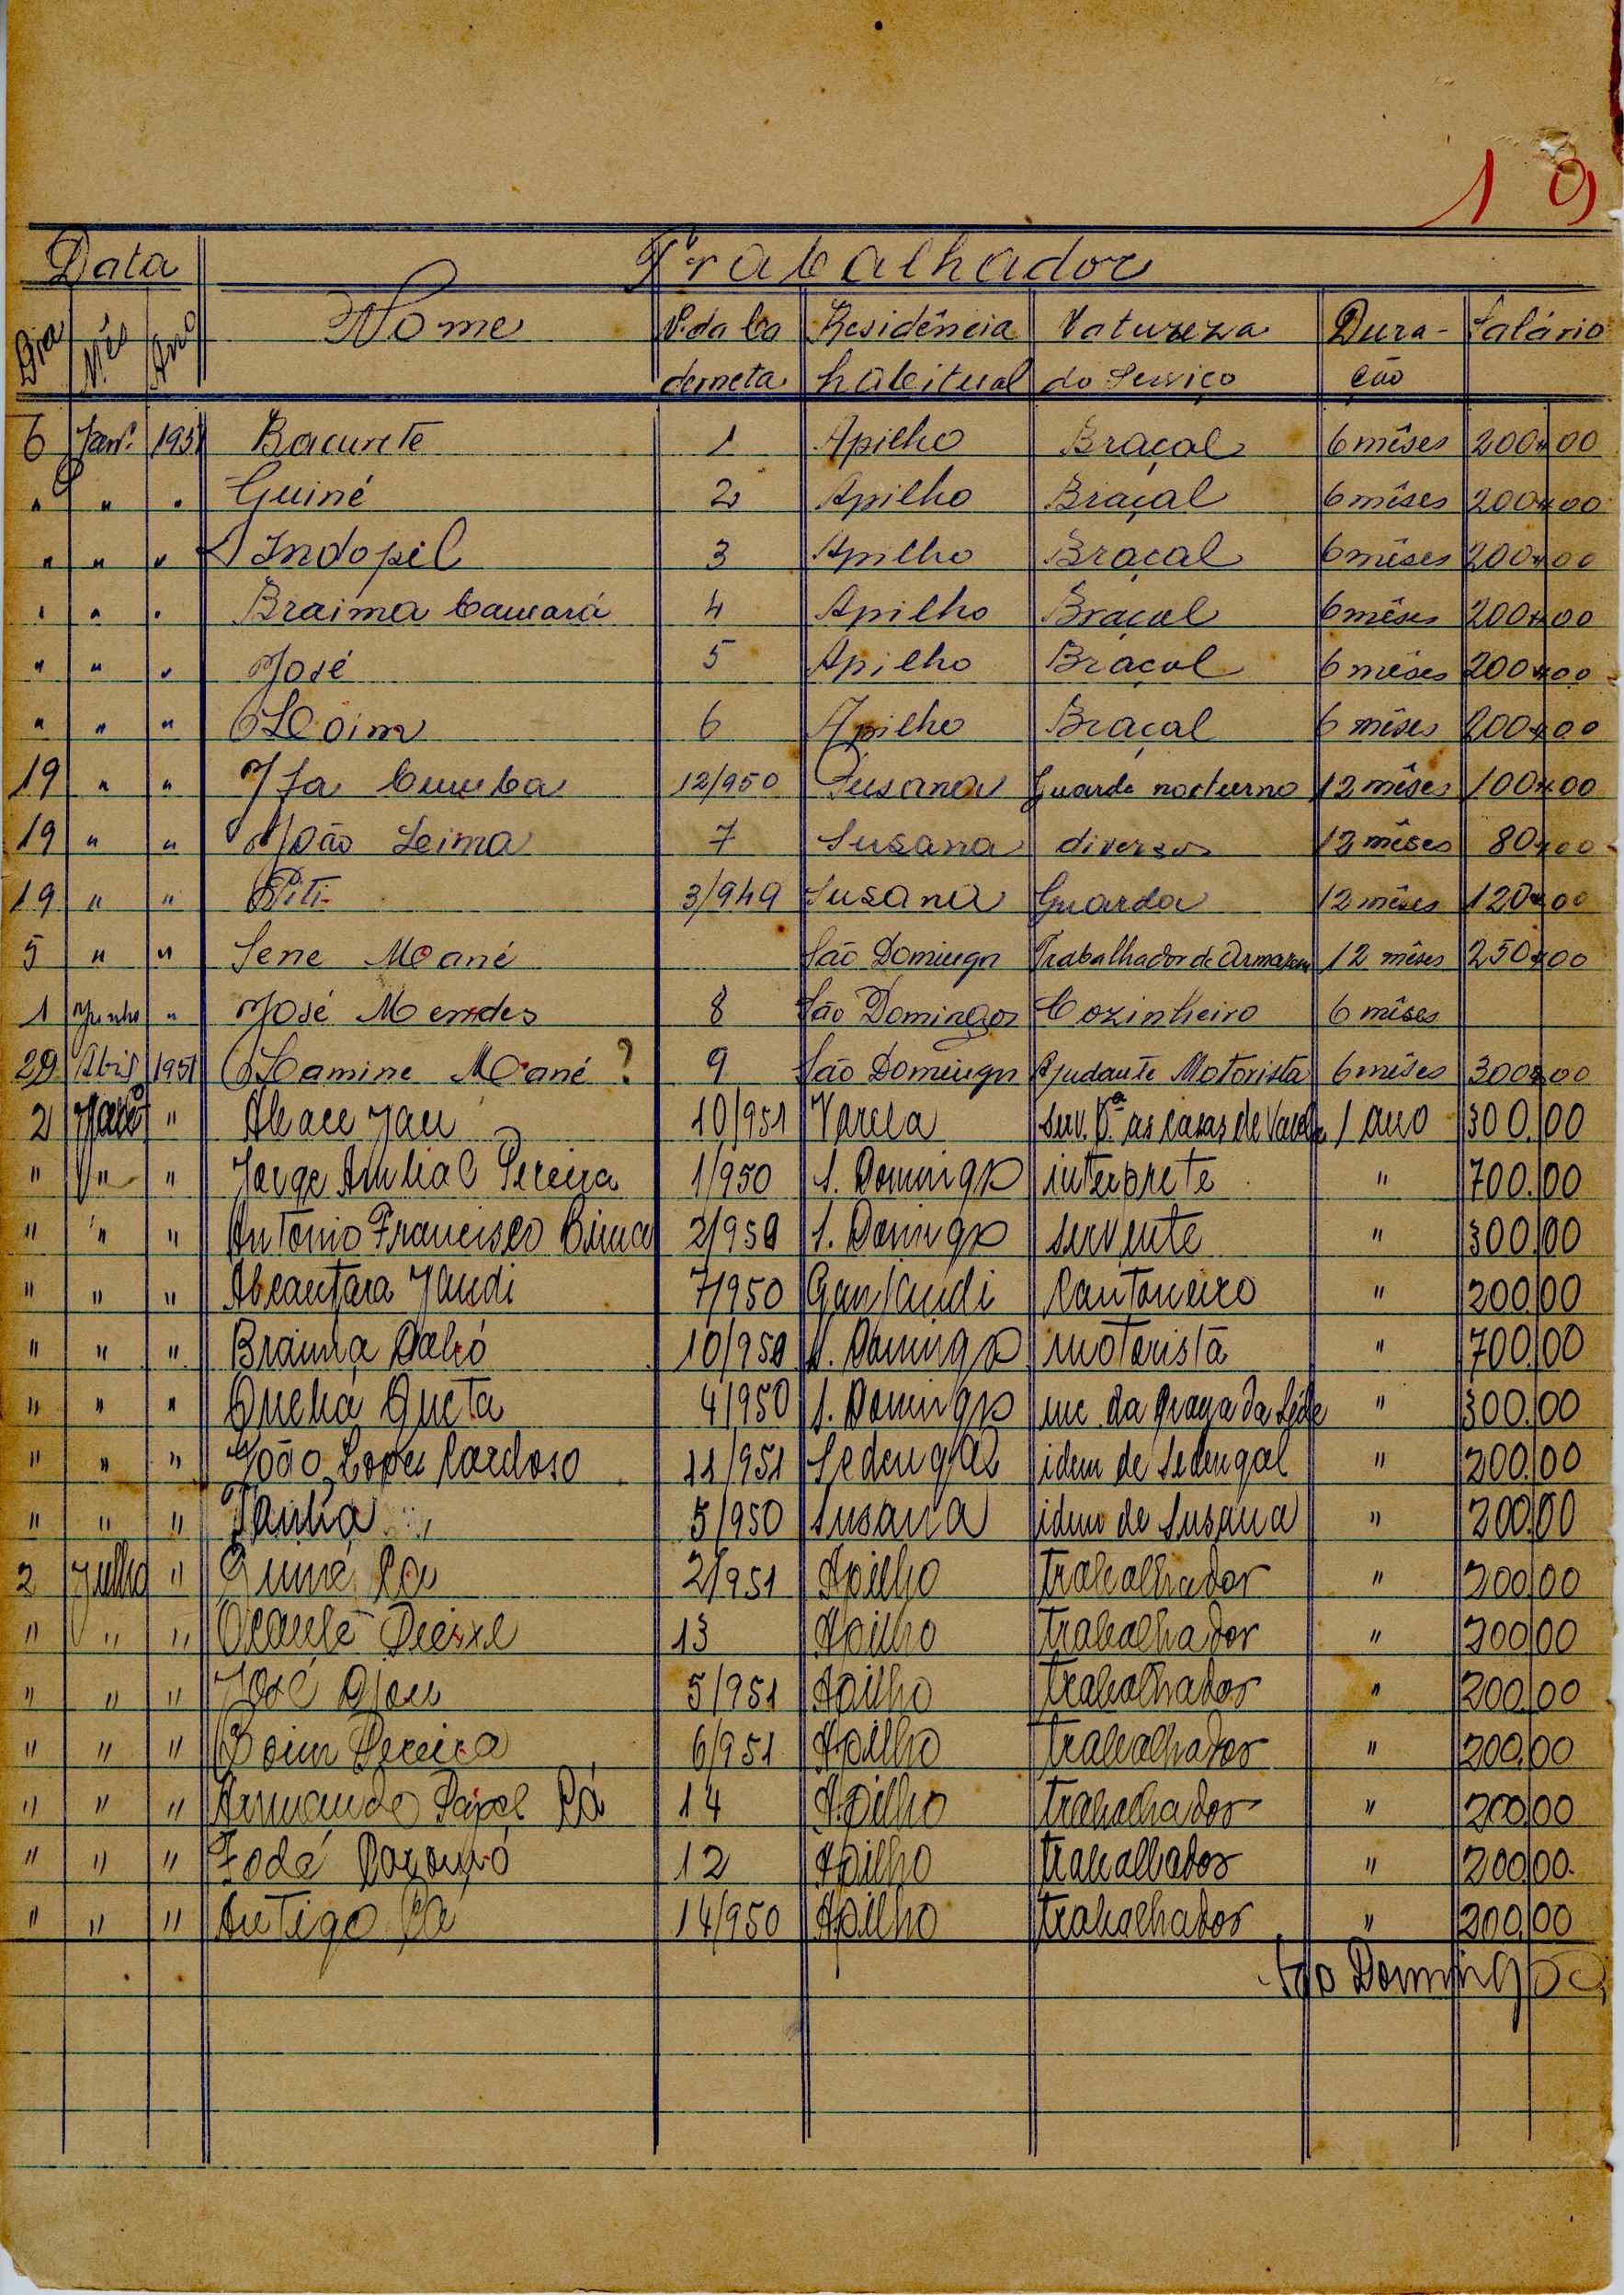 19
Data Trabalhador
Dia Mês Ano Nome Nº. da Ca Residência Natureza Dura- Salário
derneta habitual do Serviço ção
6 Janº. 1951 Bacurete 1 Apilho Braçal 6 mêses 200$00
" " " Guiné 2 Apilho Braçal 6 mêses 200$00
" " " Indopil 3 Apilho Braçal 6 mêses 200$00
" " " Braima Camará 4 Apilho Braçal 6 mêses 200$00
" " " José 5 Apilho Braçal 6 mêses 200$00
" " " 6 Apilho Braçal 6 mêses 200$00
19 " " 12/950 Susana Guarda nocturno 12 mêses 100$00
19 " " João Leima 7 Susana diversos 12 mêses 80$00
19 " " Piti 3/949 Susana Guarda 12 mêses 120$00
5 " " Sene Mané São Domingos Trabalhador de Armazem 12 mêses 250$00
1 Junho " José Mendes 8 São Domingos Cozinheiro 6 mêses
29 Abril 1951 Lamine Mané ? 9 São Domingos Ajudante Motorista 6 mêses 300$00
2 " 10/951 Varela serv. Pª as casas de Varela 1 ano 300.00
" " " Jorge Amilial Pereira 1/950 S. Domingos interprete " 700.00
" " " António Francisco 2/950 S. Domingos servente " 300.00
" " " Alcantara Jandi 7/950 cantoneiro " 200.00
" " " Braima 10/950 S. Domingos motorista " 700.00
" " " Queta 4/950 S. Domingos enc. da granja da Séde " 300.00
" " " João Lopes Cardoso 11/951 Sedengal idem de Sedengal " 200.00
" " " 5/950 Susana idem de Susana " 200.00
2 Julho " Guiné Cá 2/951 Apilho trabalhador " 200.00
" " " 13 Apilho trabalhador " 200.00
" " " José 5/951 Apilho trabalhador " 200.00
" " " Pereira 6/951 Apilho trabalhador " 200.00
" " " Armando Papel Cá 14 Apilho trabalhador " 200.00
" " " Fodé 12 Apilho trabalhador " 200.00.
" " " Antigo Cá 14/950 Apilho trabalhador " 200.00
São Domingos,